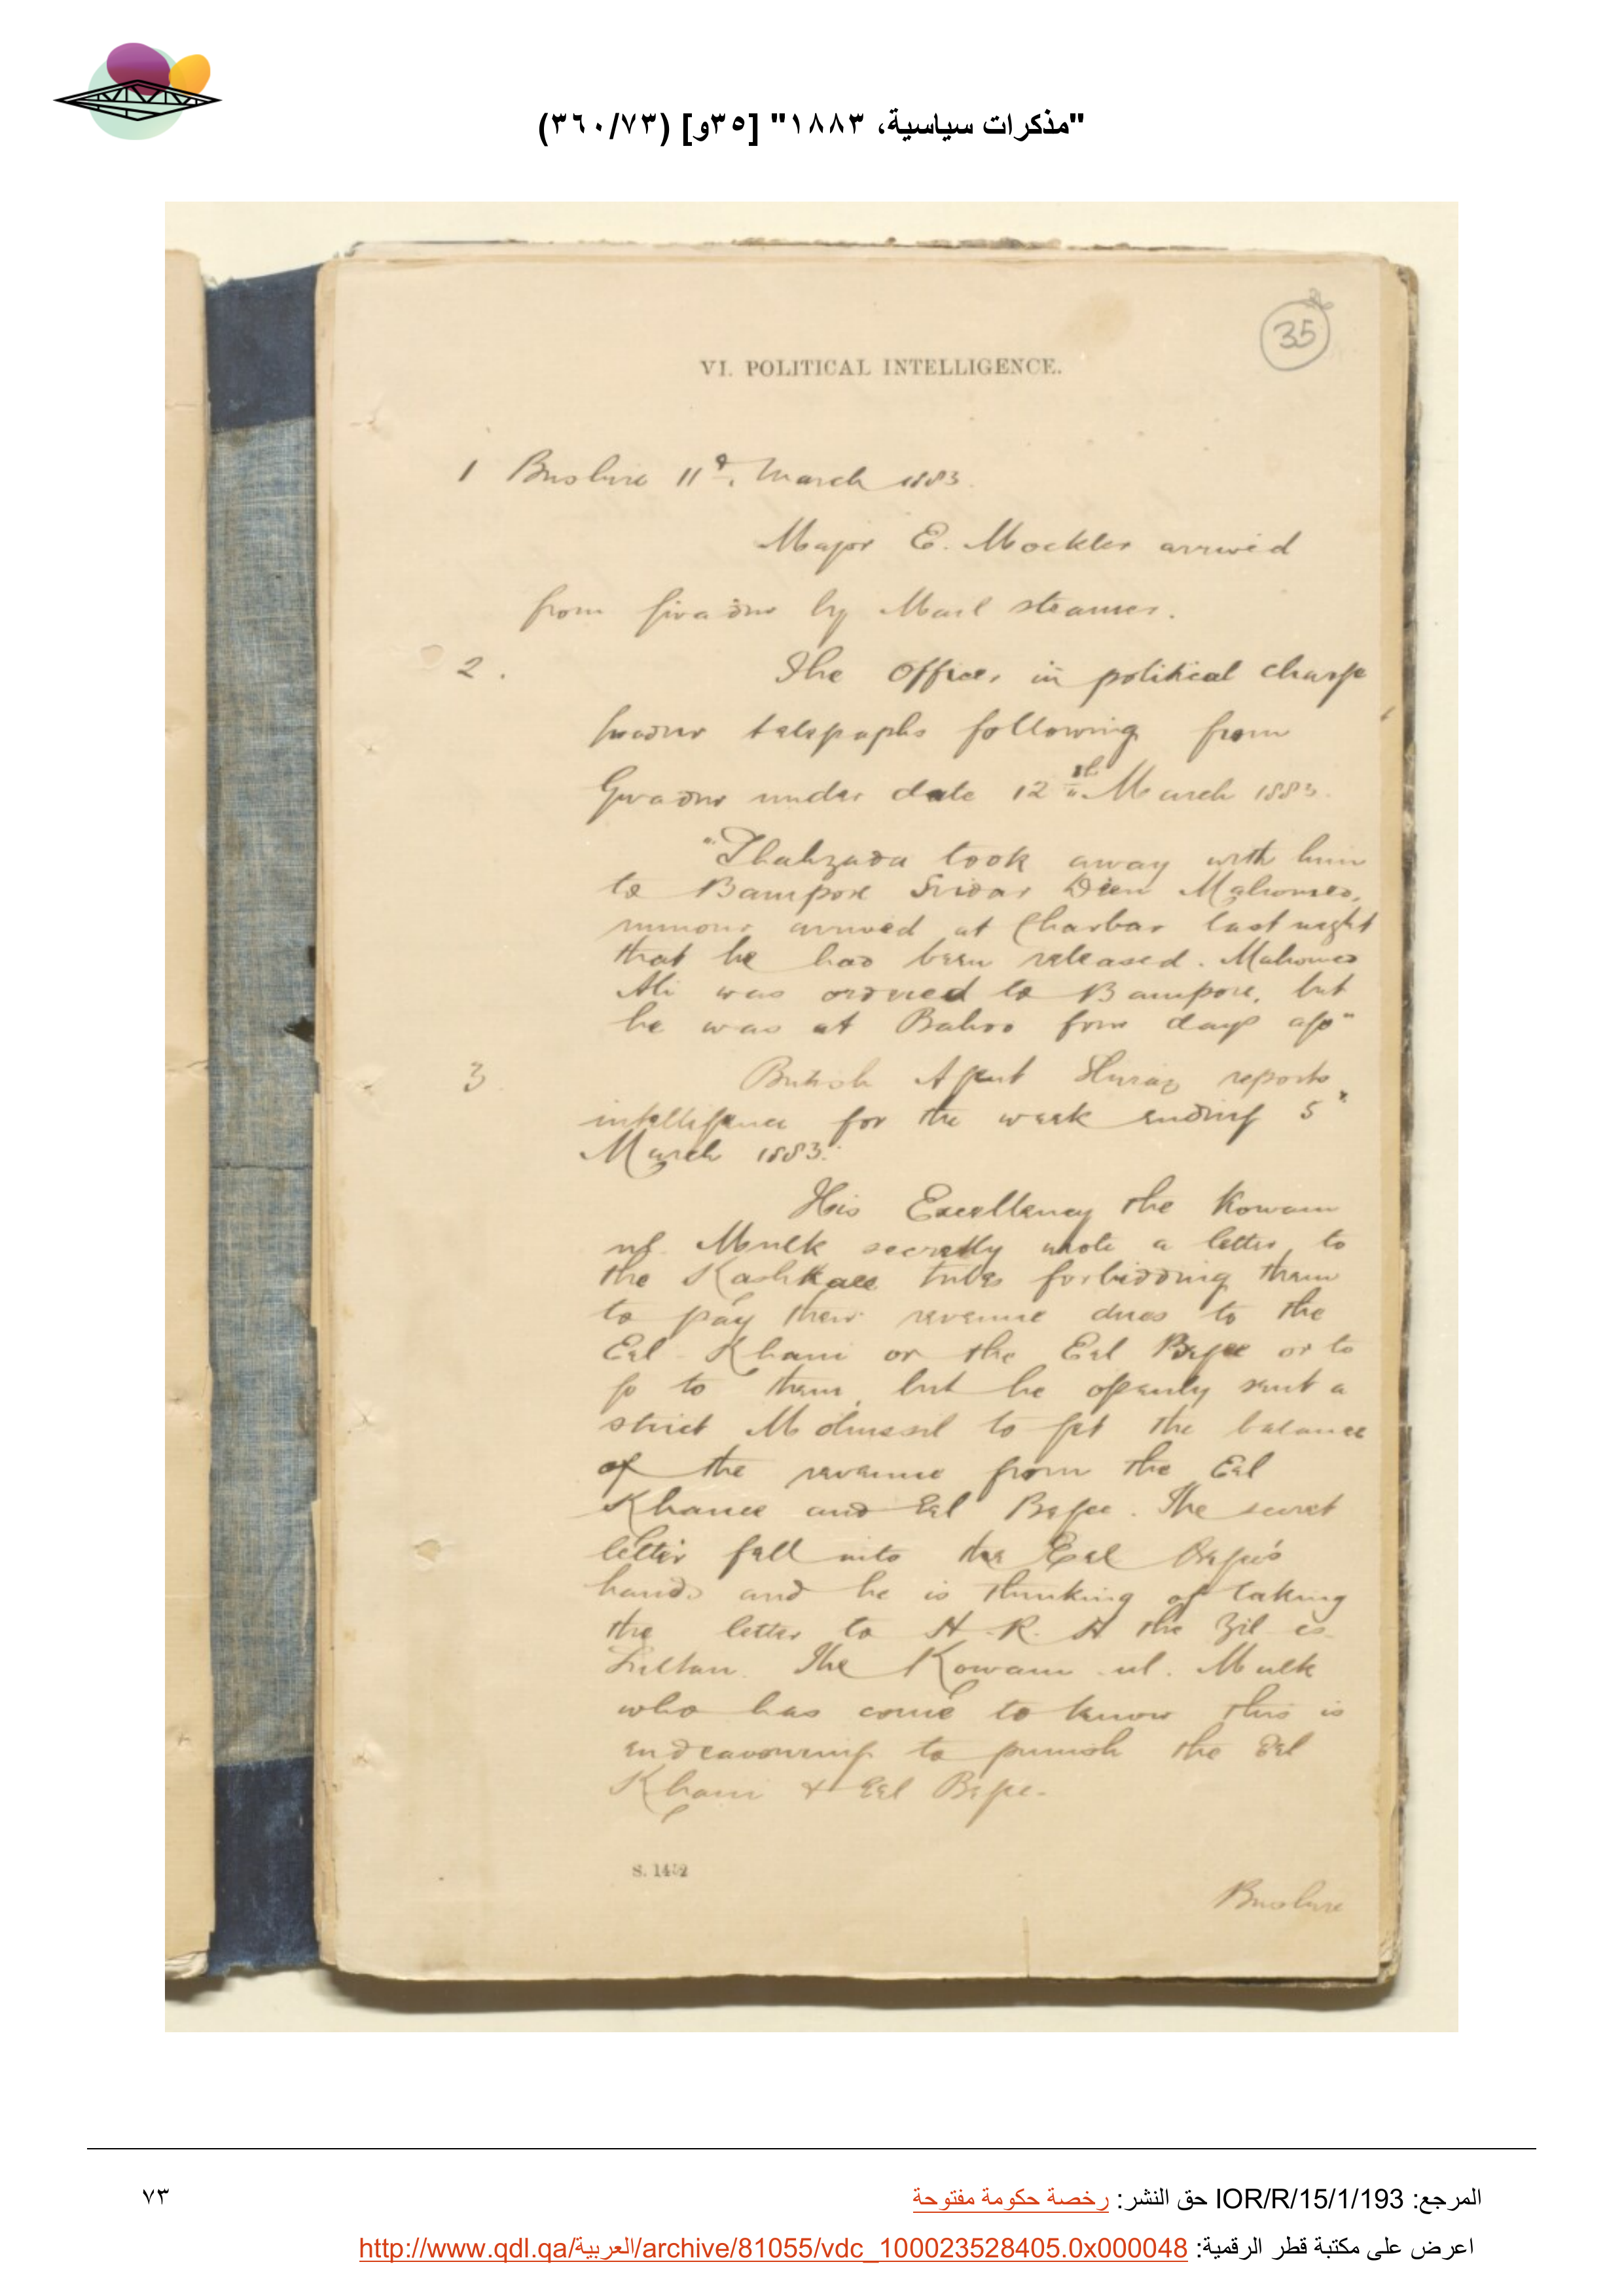 "مذكرات سياسية، ١٨٨٣" [٣٥و] (٣٦٠/٧٣)
35
VI. POLITICAL INTELLIGENCE.
1 Bushire 11th. March 1883.
Major E. Mockler arrived
from Gwadur by Mail steamer.
2.
The Officer in political charge
Gwadur telegraphs following from
Gwadur under date 12th March 1883.
"Shahzada took away with him
to Bampore Sirdar Deen Mahomed,
rumour arrived at Charbar last night
that he had been released. Mahomed
Ali was ordered to Bampore, but
he was at Bahoo four days ago"
3
British Agent Shiraz reports
intelligence for the week ending 5th
March 1883.
His Excellency the Kowam
ul. Mulk secretly wrote a letter to
the Kashkaee tribes forbidding them
to pay their revenue dues to the
Eel Khani or the Eel Begee or to
go to them, but he openly sent a
strict Mohussil to get the balance
of the revenue from the Eel
Khanee and Eel Begee. The secret
letter fell into the Eel Begee's
hands and he is thinking of taking
the letter to H. R. H the Zil es
Sultan. The Kowam ul. Mulk
who has come to know this is
endeavouring to punish the Eel
Khani & Eel Bege.
S. 1452
Bushire
المرجع: IOR/R/15/1/193 حق النشر: رخصة حكومة مفتوحة
٧٣
اعرض على مكتبة قطر الرقمية: http://www.qdl.qa/العربية/archive/81055/vdc_100023528405.0x000048